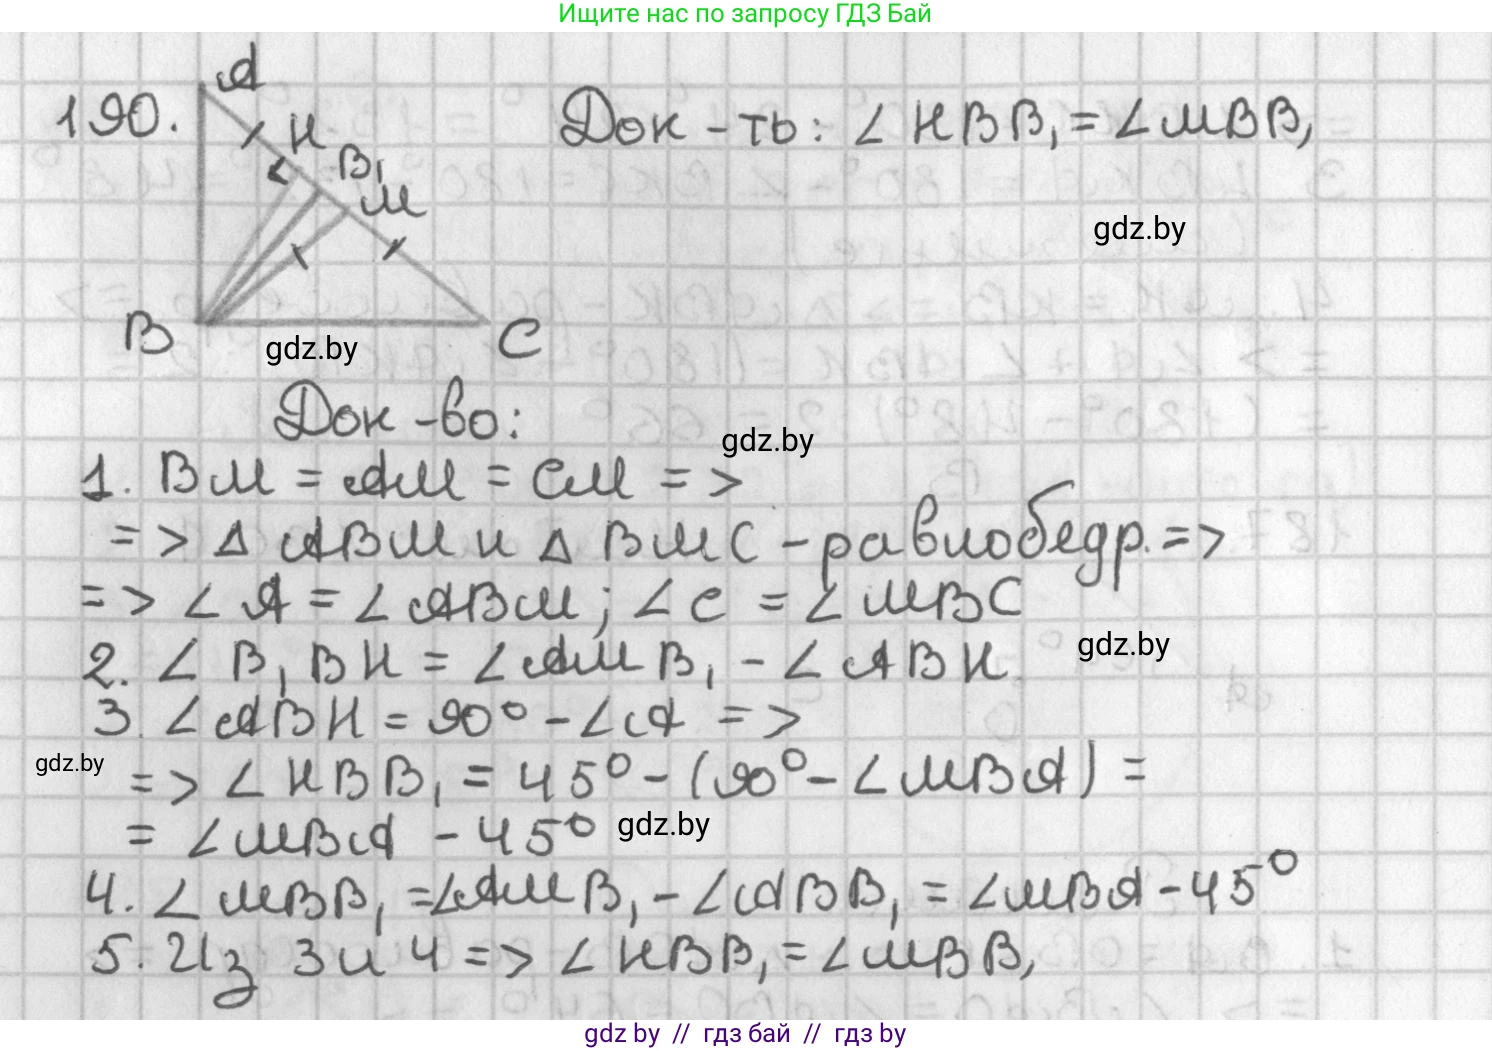 Ищите нас по запросу ГДЗ Бай
190.
A
H
B₁
M
B
C
Док-ть: ∠HBB₁ = ∠MBB₁
gdz.by
gdz.by
Док-во:
gdz.by
1. BM = AM = CM =>
=> Δ ABM и Δ BMC - равнобедр. =>
=> ∠A = ∠ABM; ∠C = ∠MBC
gdz.by
2. ∠B₁BH = ∠AMB₁ - ∠ABH
3. ∠ABH = 90° - ∠A =>
gdz.by
=> ∠HBB₁ = 45° - (90° - ∠MBA) =
= ∠MBA - 45°
gdz.by
4. ∠MBB₁ = ∠AMB₁ - ∠ABB₁ = ∠MBA - 45°
5. Из 3 и 4 => ∠HBB₁ = ∠MBB₁
gdz by // гдз бай // гдз by